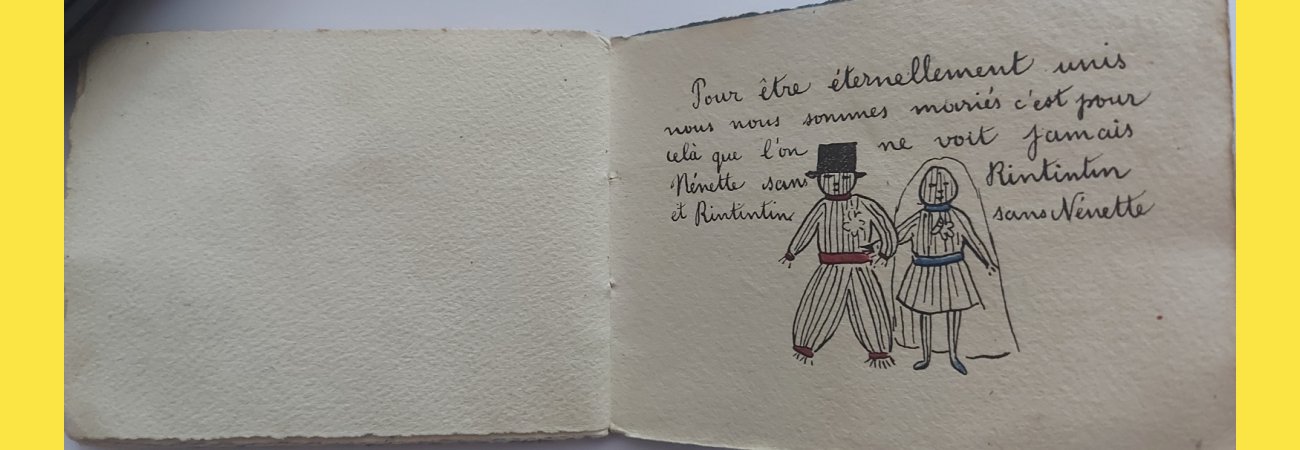 Pour être éternellement unis
nous nous sommes mariés c'est pour
celà que l'on ne voit jamais
Nénette sans Rintintin
et Rintintin sans Nénette